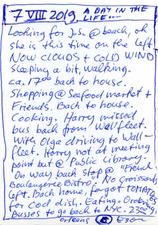 7 VIII 2019 A DAY IN THE LIFE...
Looking for J.S. @ beach, oh
she is this time on the left
NOW CLOUDS & COLD WIND
Sleeping a bit, walking.
ca. 17°° back to house.
Shopping @ Seafood market &
Friends. Back to house.
Cooking. Harry missed
bus back from Wellfleet.
With Olga driving to Well-
fleet. Harry not at meeting
point but @ Public Library.
On way back stop @ "French
Boulangerie Bistro". No croissants
left. Back home. forgot TOMATOS
for cod dish. Eating. Ordering
Busses to go back to NYC.